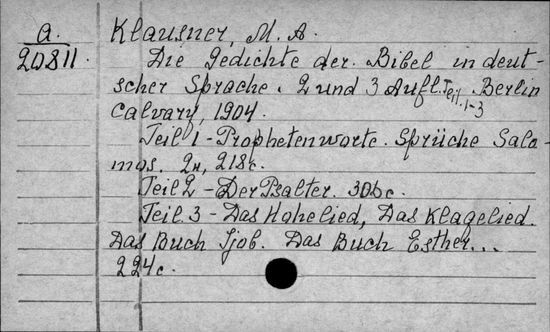 a.
20811.
Klausner, M. A.
Die Gedichte der Bibel in deut-
scher Sprache. 2 und 3 Aufl. Teil. 1-3 Berlin
Calvary, 1904.
Teil 1 - Prophetenworte. Sprüche Salo-
mos. 2н, 218с.
Teil 2 - Der Psalter. 306с.
Teil 3 - Das Hohelied, Das Klagelied.
Das Buch Ijob. Das Buch Esther...
224с.